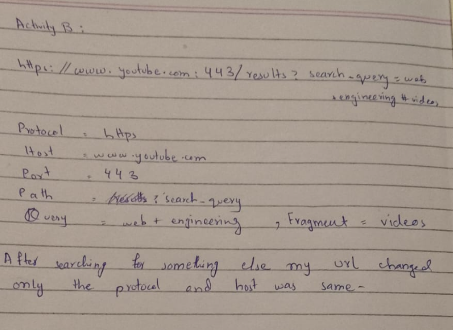 Activity B:
https://www.youtube.com:443/results? search-query=web
+engineering#videos
Protocol = https
Host = www.youtube.com
Port = 443
Path = results?search-query
Query = web+engineering, Fragment = videos
After searching for something else my url changed
only the protocol and host was same-